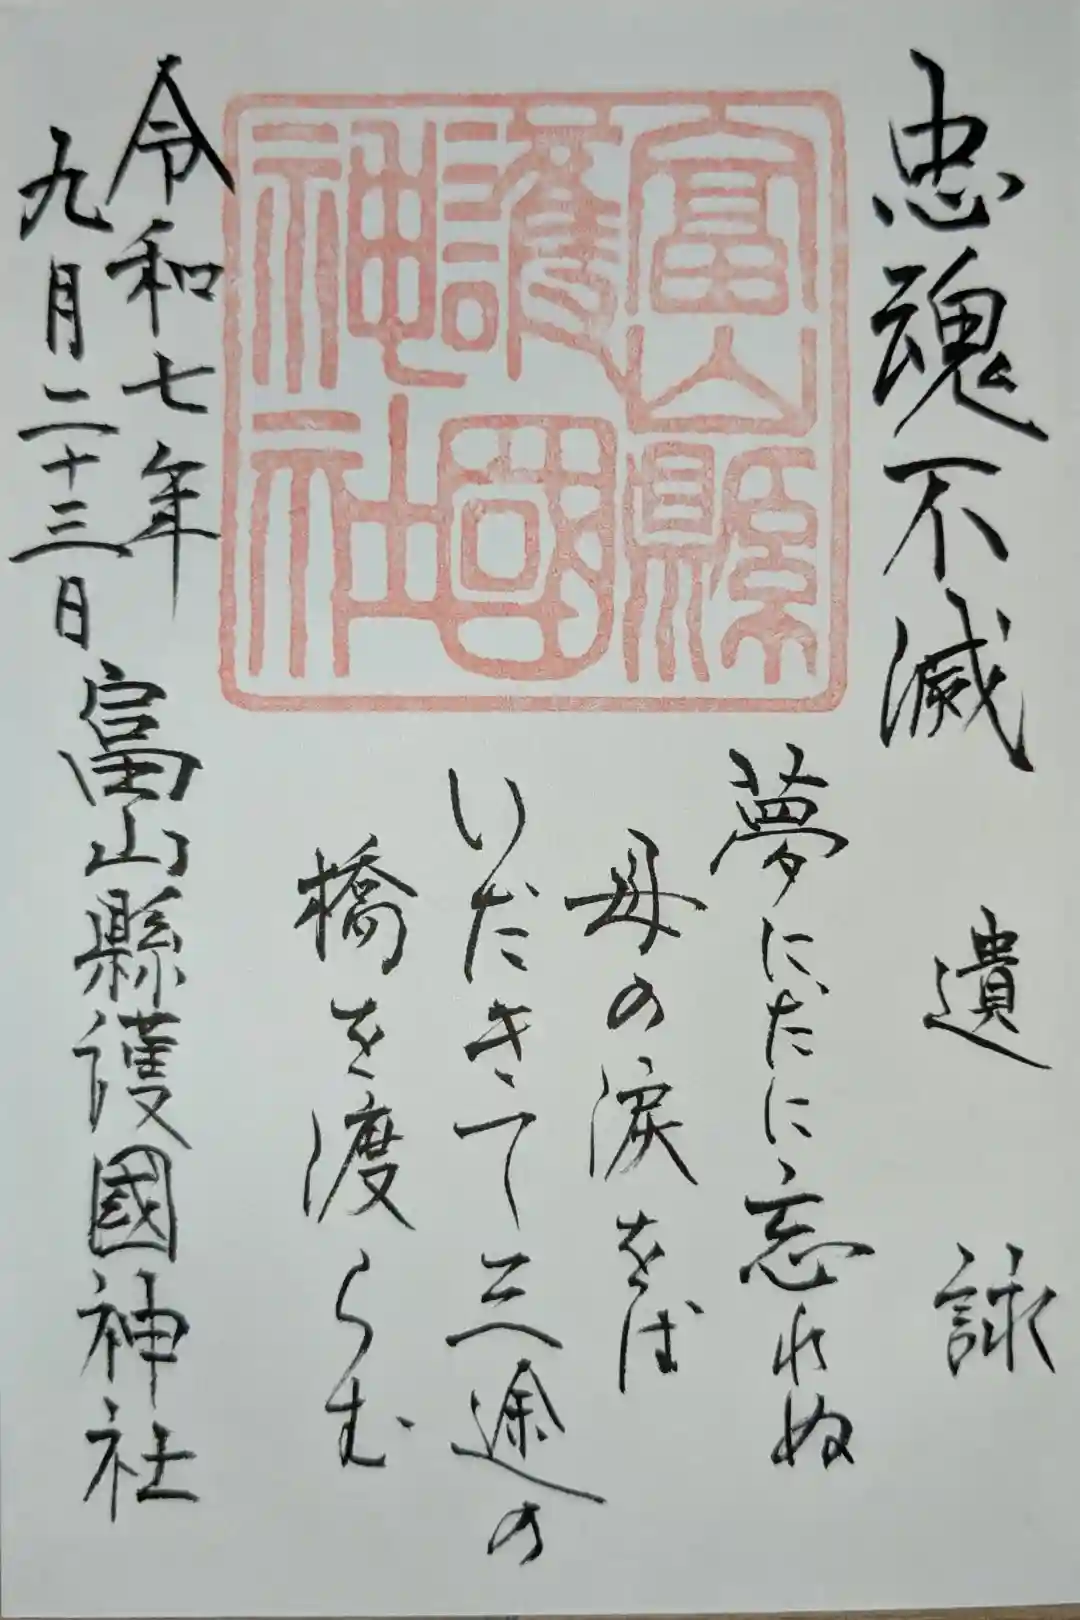 忠魂不滅
遺詠
富山縣
護國
神社
夢にだに忘れぬ
母の涙をば
いだきて三途の
橋を渡らむ
令和七年
九月二十三日
富山縣護國神社